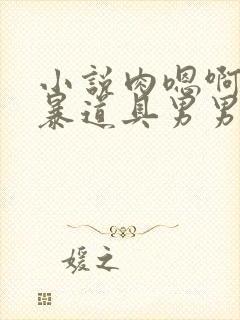 小说肉嗯啊
暴道具男男
媛之